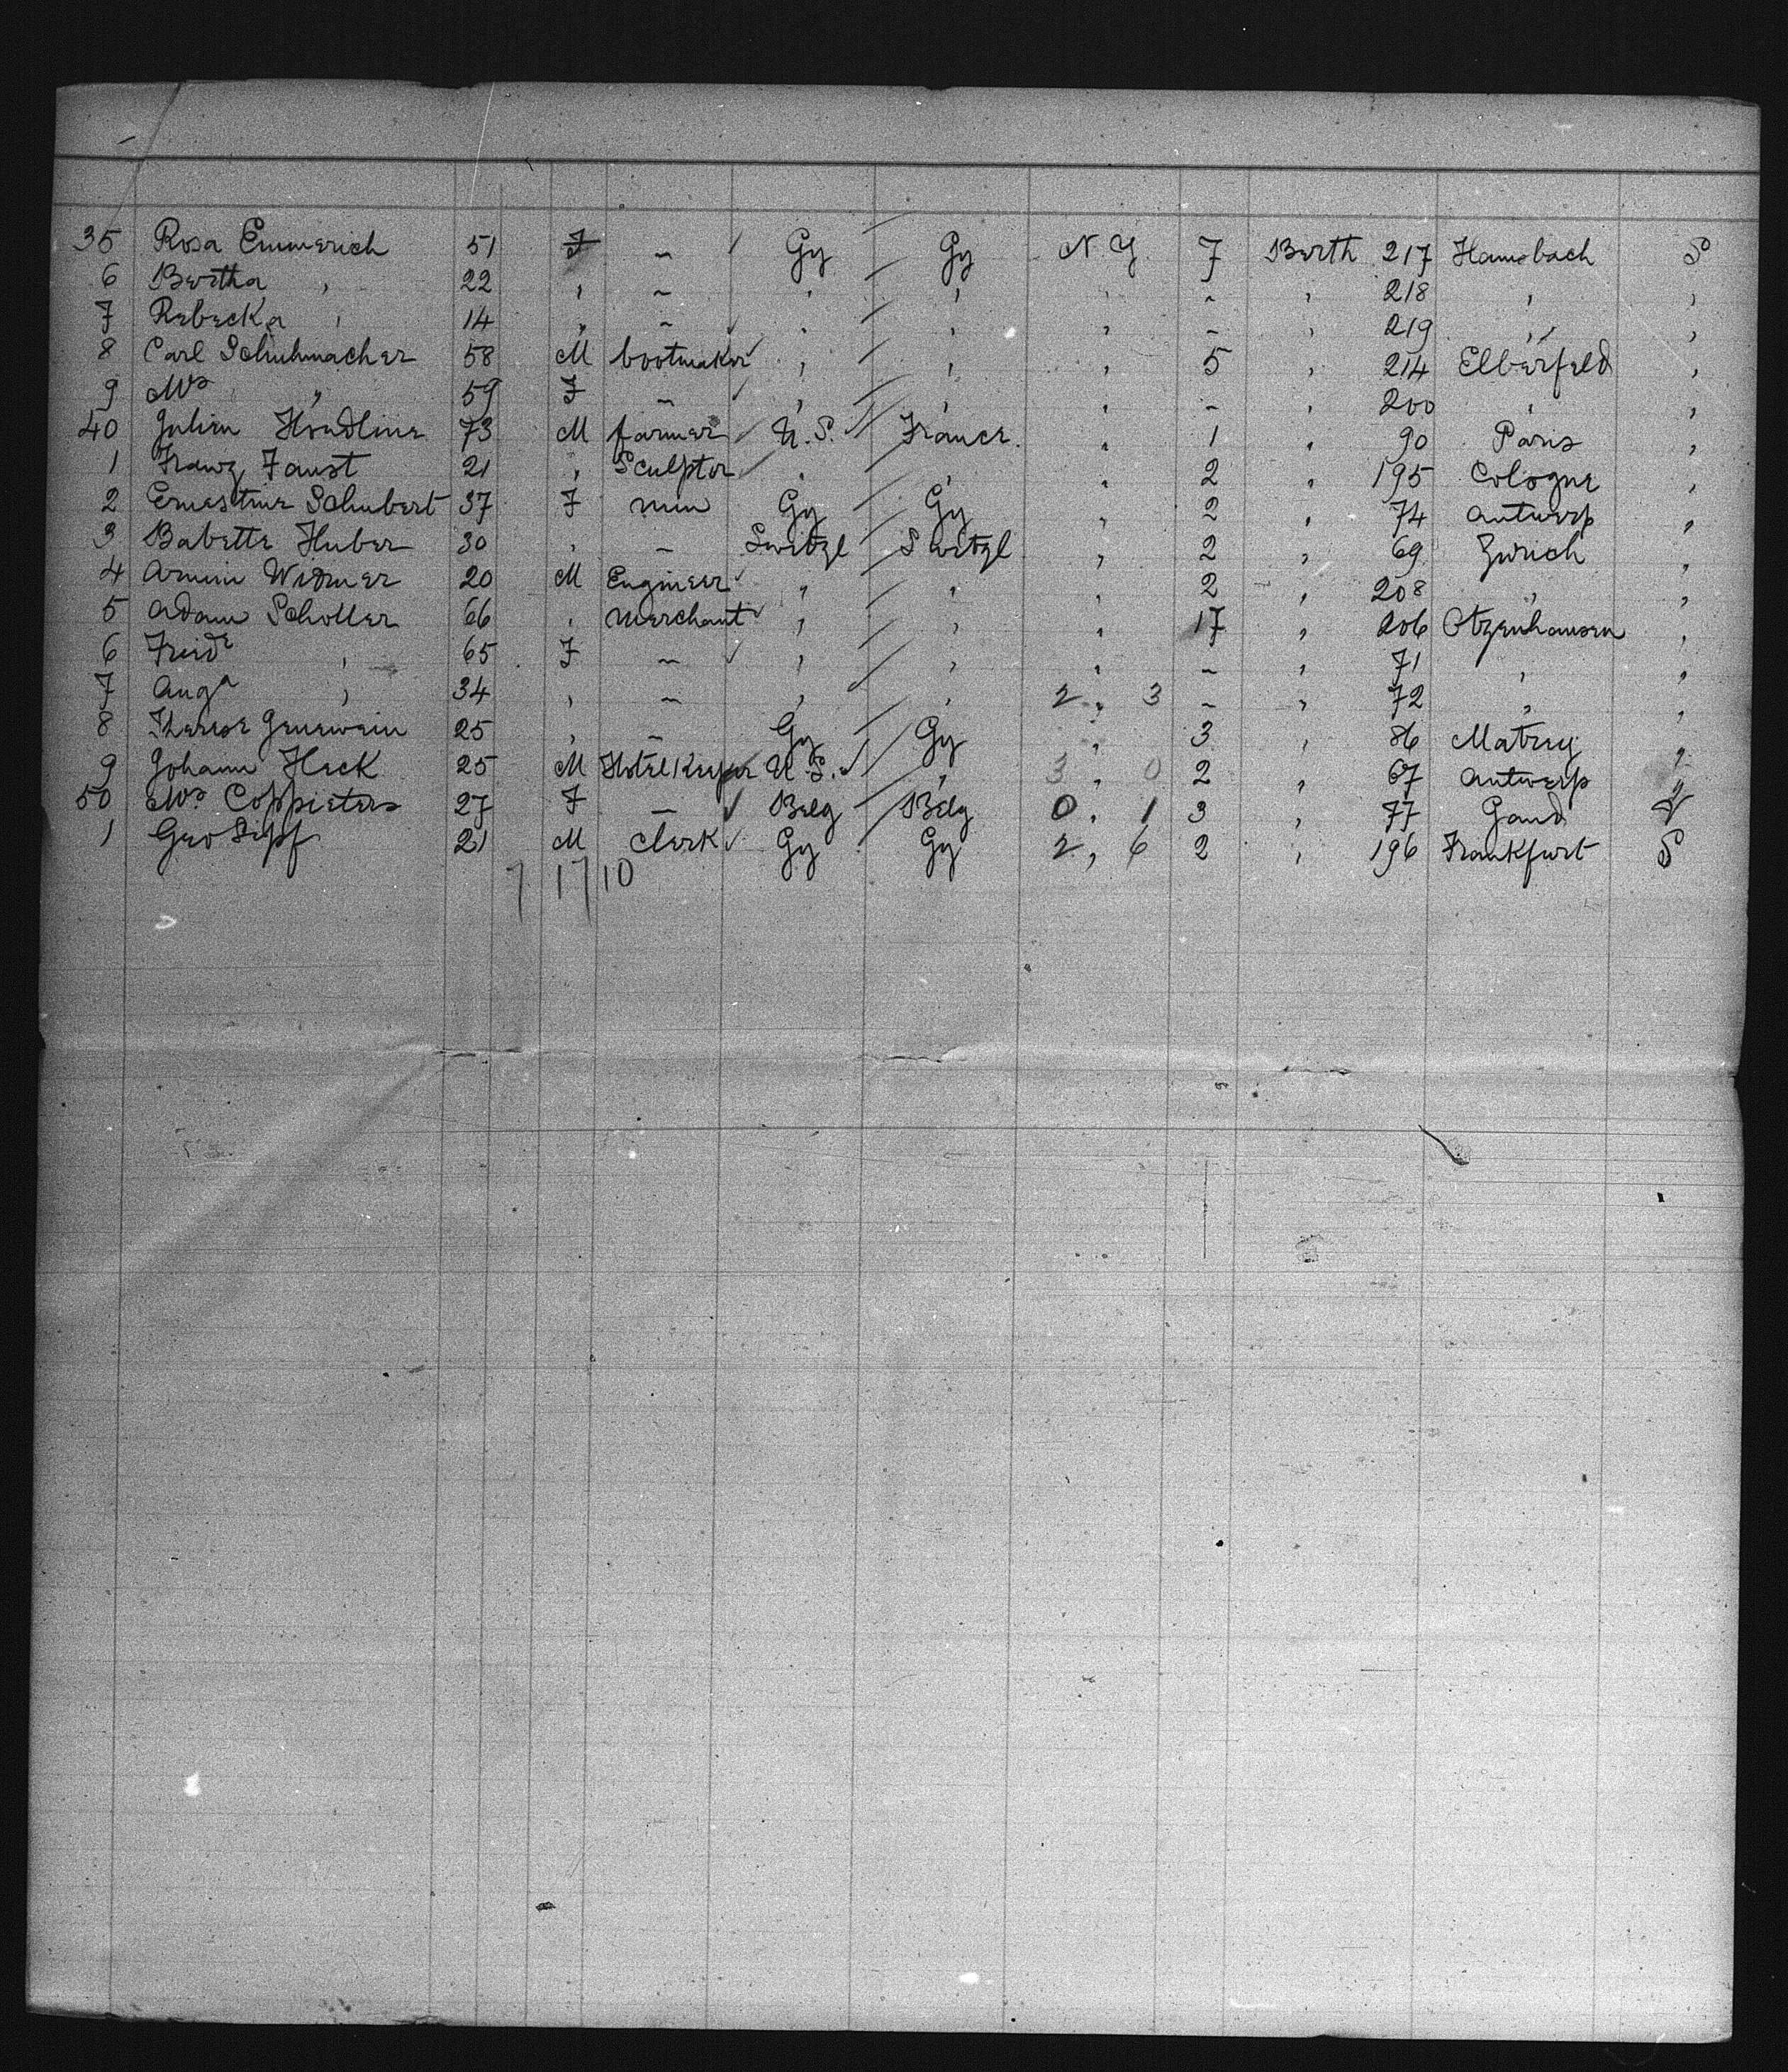 35 Rosa Emmerich 51 F ~ Gy Gy N.Y. 7 Berth 217 Hansbach S
6 Bertha , 22 , ~ , , , ~ , 218 , ,
7 Rebecka , 14 , ~ , , , ~ , 219 , ,
8 Carl Schuhmacher 58 M bootmaker , , , 5 , 214 Elberfeld ,
9 Mrs " 59 F ~ , , , ~ , 200 , ,
40 Julien 73 M farmer U.S. France , 1 , 90 Paris ,
1 Franz Faust 21 , Sculptor , , , 2 , 195 Cologne ,
2 Ernestine Schubert 37 F nun Gy Gy , 2 , 74 Antwerp ,
3 Babette Huber 30 , ~ Switzl Switzl , 2 , 69 Zurich ,
4 Armin Widmer 20 M Engineer , , , 2 , 208 , ,
5 Adam Scholler 66 , Merchant , , , 17 , 206 Otzenhausen ,
6 Friedr , 65 F ~ , , , ~ , 71 , ,
7 Auga , 34 , ~ , , 2 , 3 ~ , 72 , ,
8 Therese 25 , ~ Gy Gy , 3 , 86 Matrey ,
9 Johann Heck 25 M Hotelkeeper U.S. , 3 , 0 2 , 67 Antwerp ,
50 Mrs Coppieters 27 F ~ Belg Belg 0 , 1 3 , 77 Gand
1 Geo Sipf 21 M Clerk Gy Gy 2 , 6 2 , 196 Frankfurt S
7 17 10